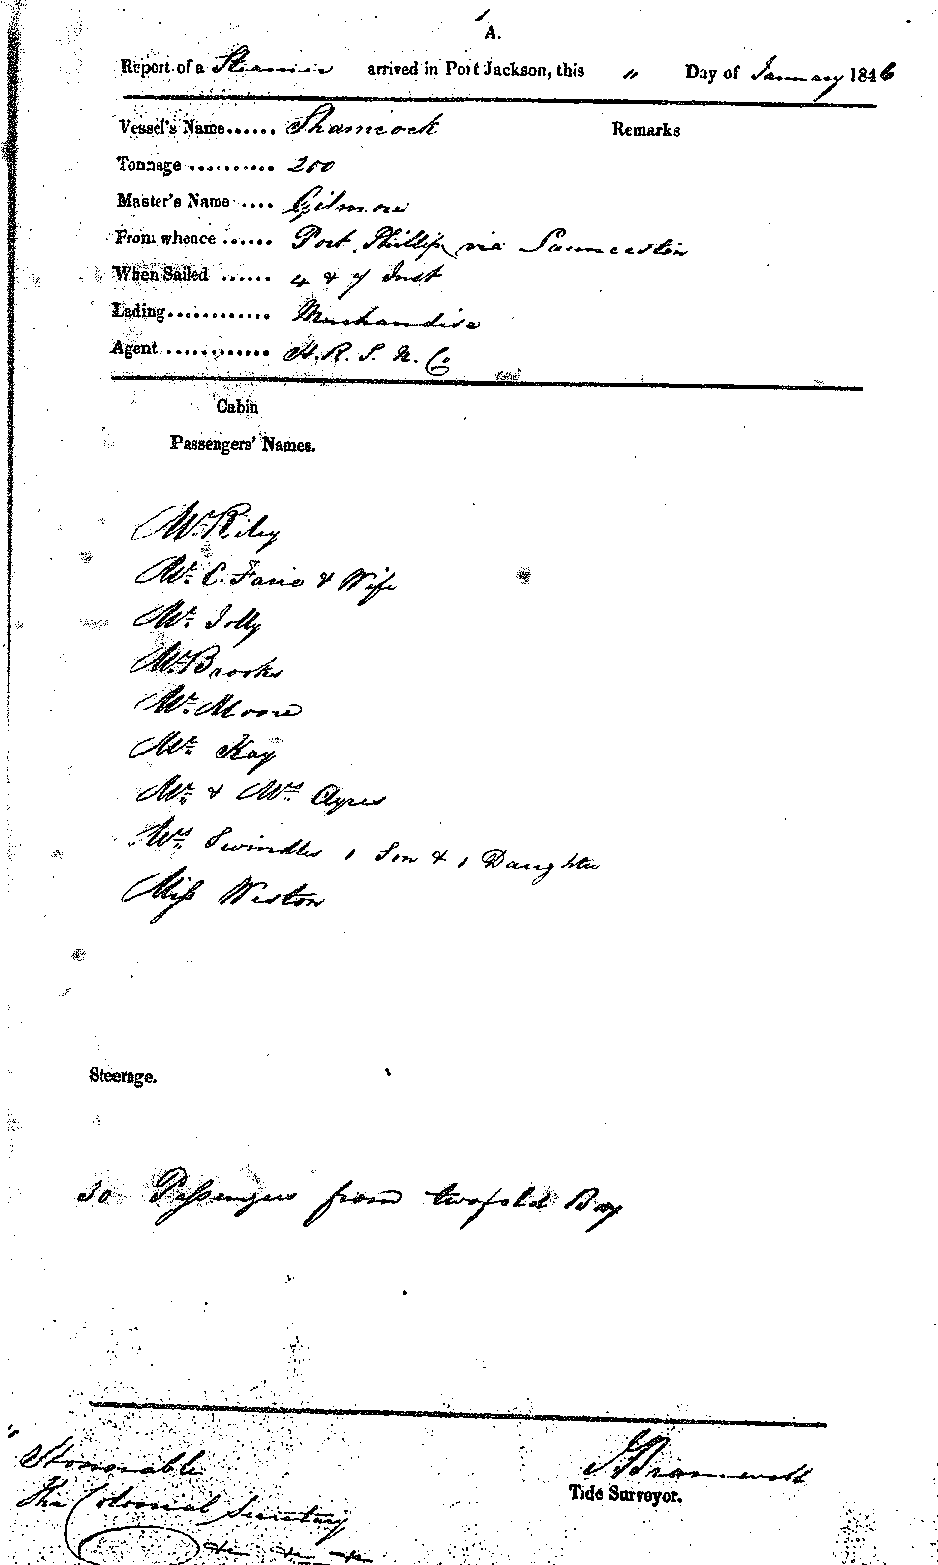 A.
Report of a Steamer arrived in Port Jackson, this 11 Day of January 1846
Vessel's Name...... Shamrock Remarks
Tonnage .......... 200
Master's Name .... Gilmore
From whence ...... Port Phillip via Launceston
When Sailed ...... 4 & 7 Inst
Lading............ Merchandise
Agent ............ H. R. S. N. Co
Cabin
Passengers' Names.
Mr. Riley
Mr. C. Farie & Wife
Mr. Jolly
Mr. Brooks
Mr. Moore
Mr. Kay
Mr. & Mrs. Ayres
Mrs. Swindles 1 Son & 1 Daughter
Miss Weston
Steerage.
30 Passengers from twofold Bay
Honorable
The Colonial Secretary
&c &c &c
Bramwell
Tide Surveyor.